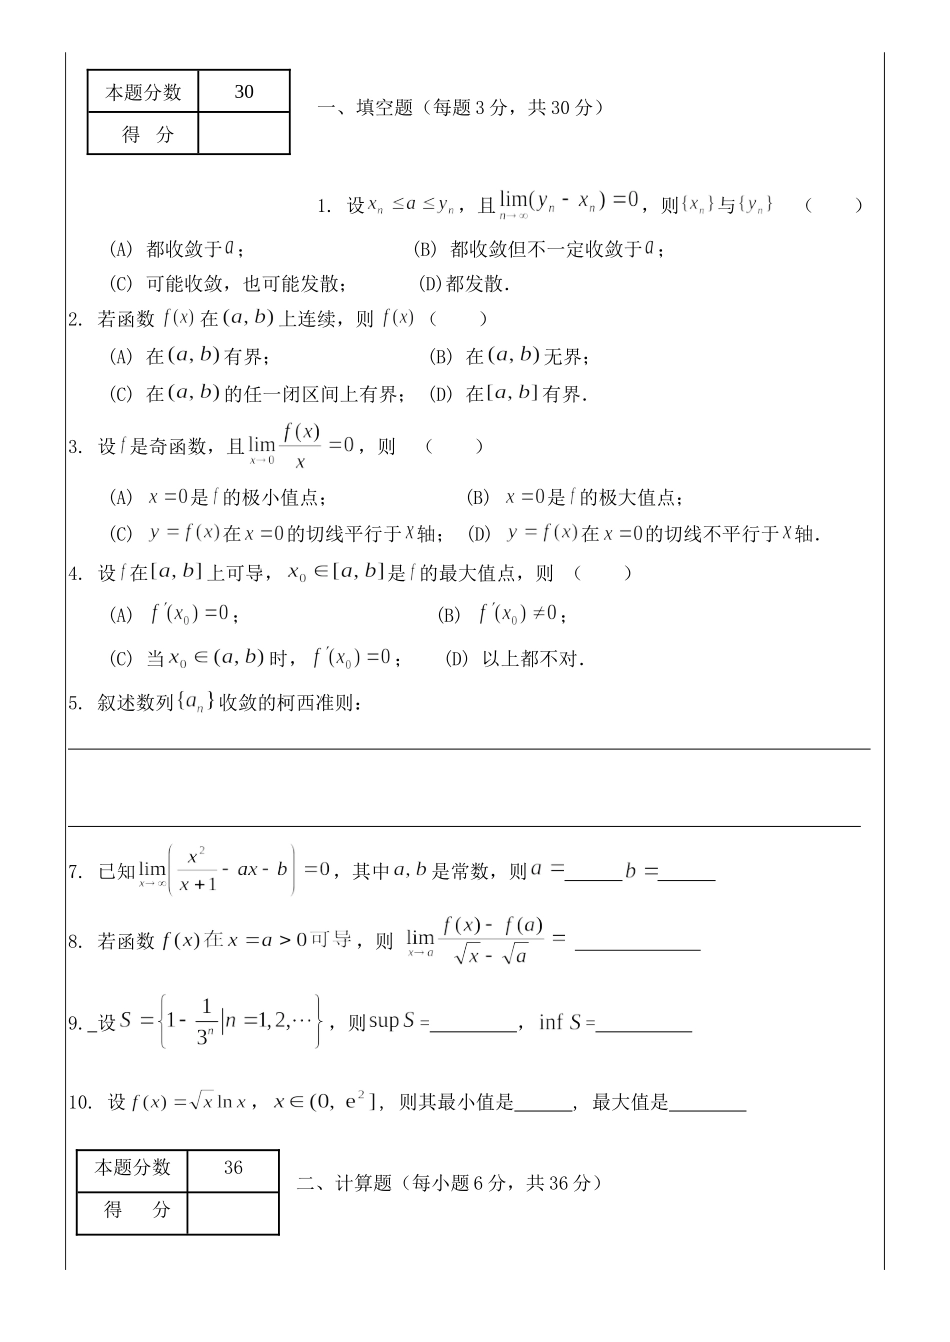 本题分数 30
得 分
一、填空题（每题3分，共30分）
1. 设$x_n \leq a \leq y_n$，且$\lim\limits_{n\to\infty}(y_n - x_n) = 0$，则$\{x_n\}$与$\{y_n\}$ （ ）
(A) 都收敛于$a$； (B) 都收敛但不一定收敛于$a$；
(C) 可能收敛，也可能发散； (D)都发散．
2. 若函数$f(x)$在$(a, b)$上连续，则$f(x)$（ ）
(A) 在$(a, b)$有界； (B) 在$(a, b)$无界；
(C) 在$(a, b)$的任一闭区间上有界； (D) 在$[a, b]$有界．
3. 设$f$是奇函数，且$\lim\limits_{x\to 0}\frac{f(x)}{x} = 0$，则 （ ）
(A) $x = 0$是$f$的极小值点； (B) $x = 0$是$f$的极大值点；
(C) $y = f(x)$在$x = 0$的切线平行于$x$轴； (D) $y = f(x)$在$x = 0$的切线不平行于$x$轴．
4. 设$f$在$[a, b]$上可导，$x_0 \in [a, b]$是$f$的最大值点，则 （ ）
(A) $f'(x_0) = 0$； (B) $f'(x_0) \neq 0$；
(C) 当$x_0 \in (a, b)$时，$f'(x_0) = 0$； (D) 以上都不对．
5. 叙述数列$\{a_n\}$收敛的柯西准则：
7. 已知$\lim\limits_{x\to\infty}\left(\frac{x^2}{x+1} - ax - b\right) = 0$，其中$a, b$是常数，则$a =$______$b =$______
8. 若函数$f(x)$在$x = a > 0$可导，则 $\lim\limits_{x\to a}\frac{f(x) - f(a)}{\sqrt{x} - \sqrt{a}} =$ _____________
9. 设$S = \left\{1 - \frac{1}{3^n} | n = 1, 2, \cdots\right\}$，则$\sup S =$_________，$\inf S =$__________
10. 设$f(x) = \sqrt{x}\ln x$，$x \in (0, e^2]$，则其最小值是______，最大值是________
本题分数 36
得 分
二、计算题（每小题6分，共36分）